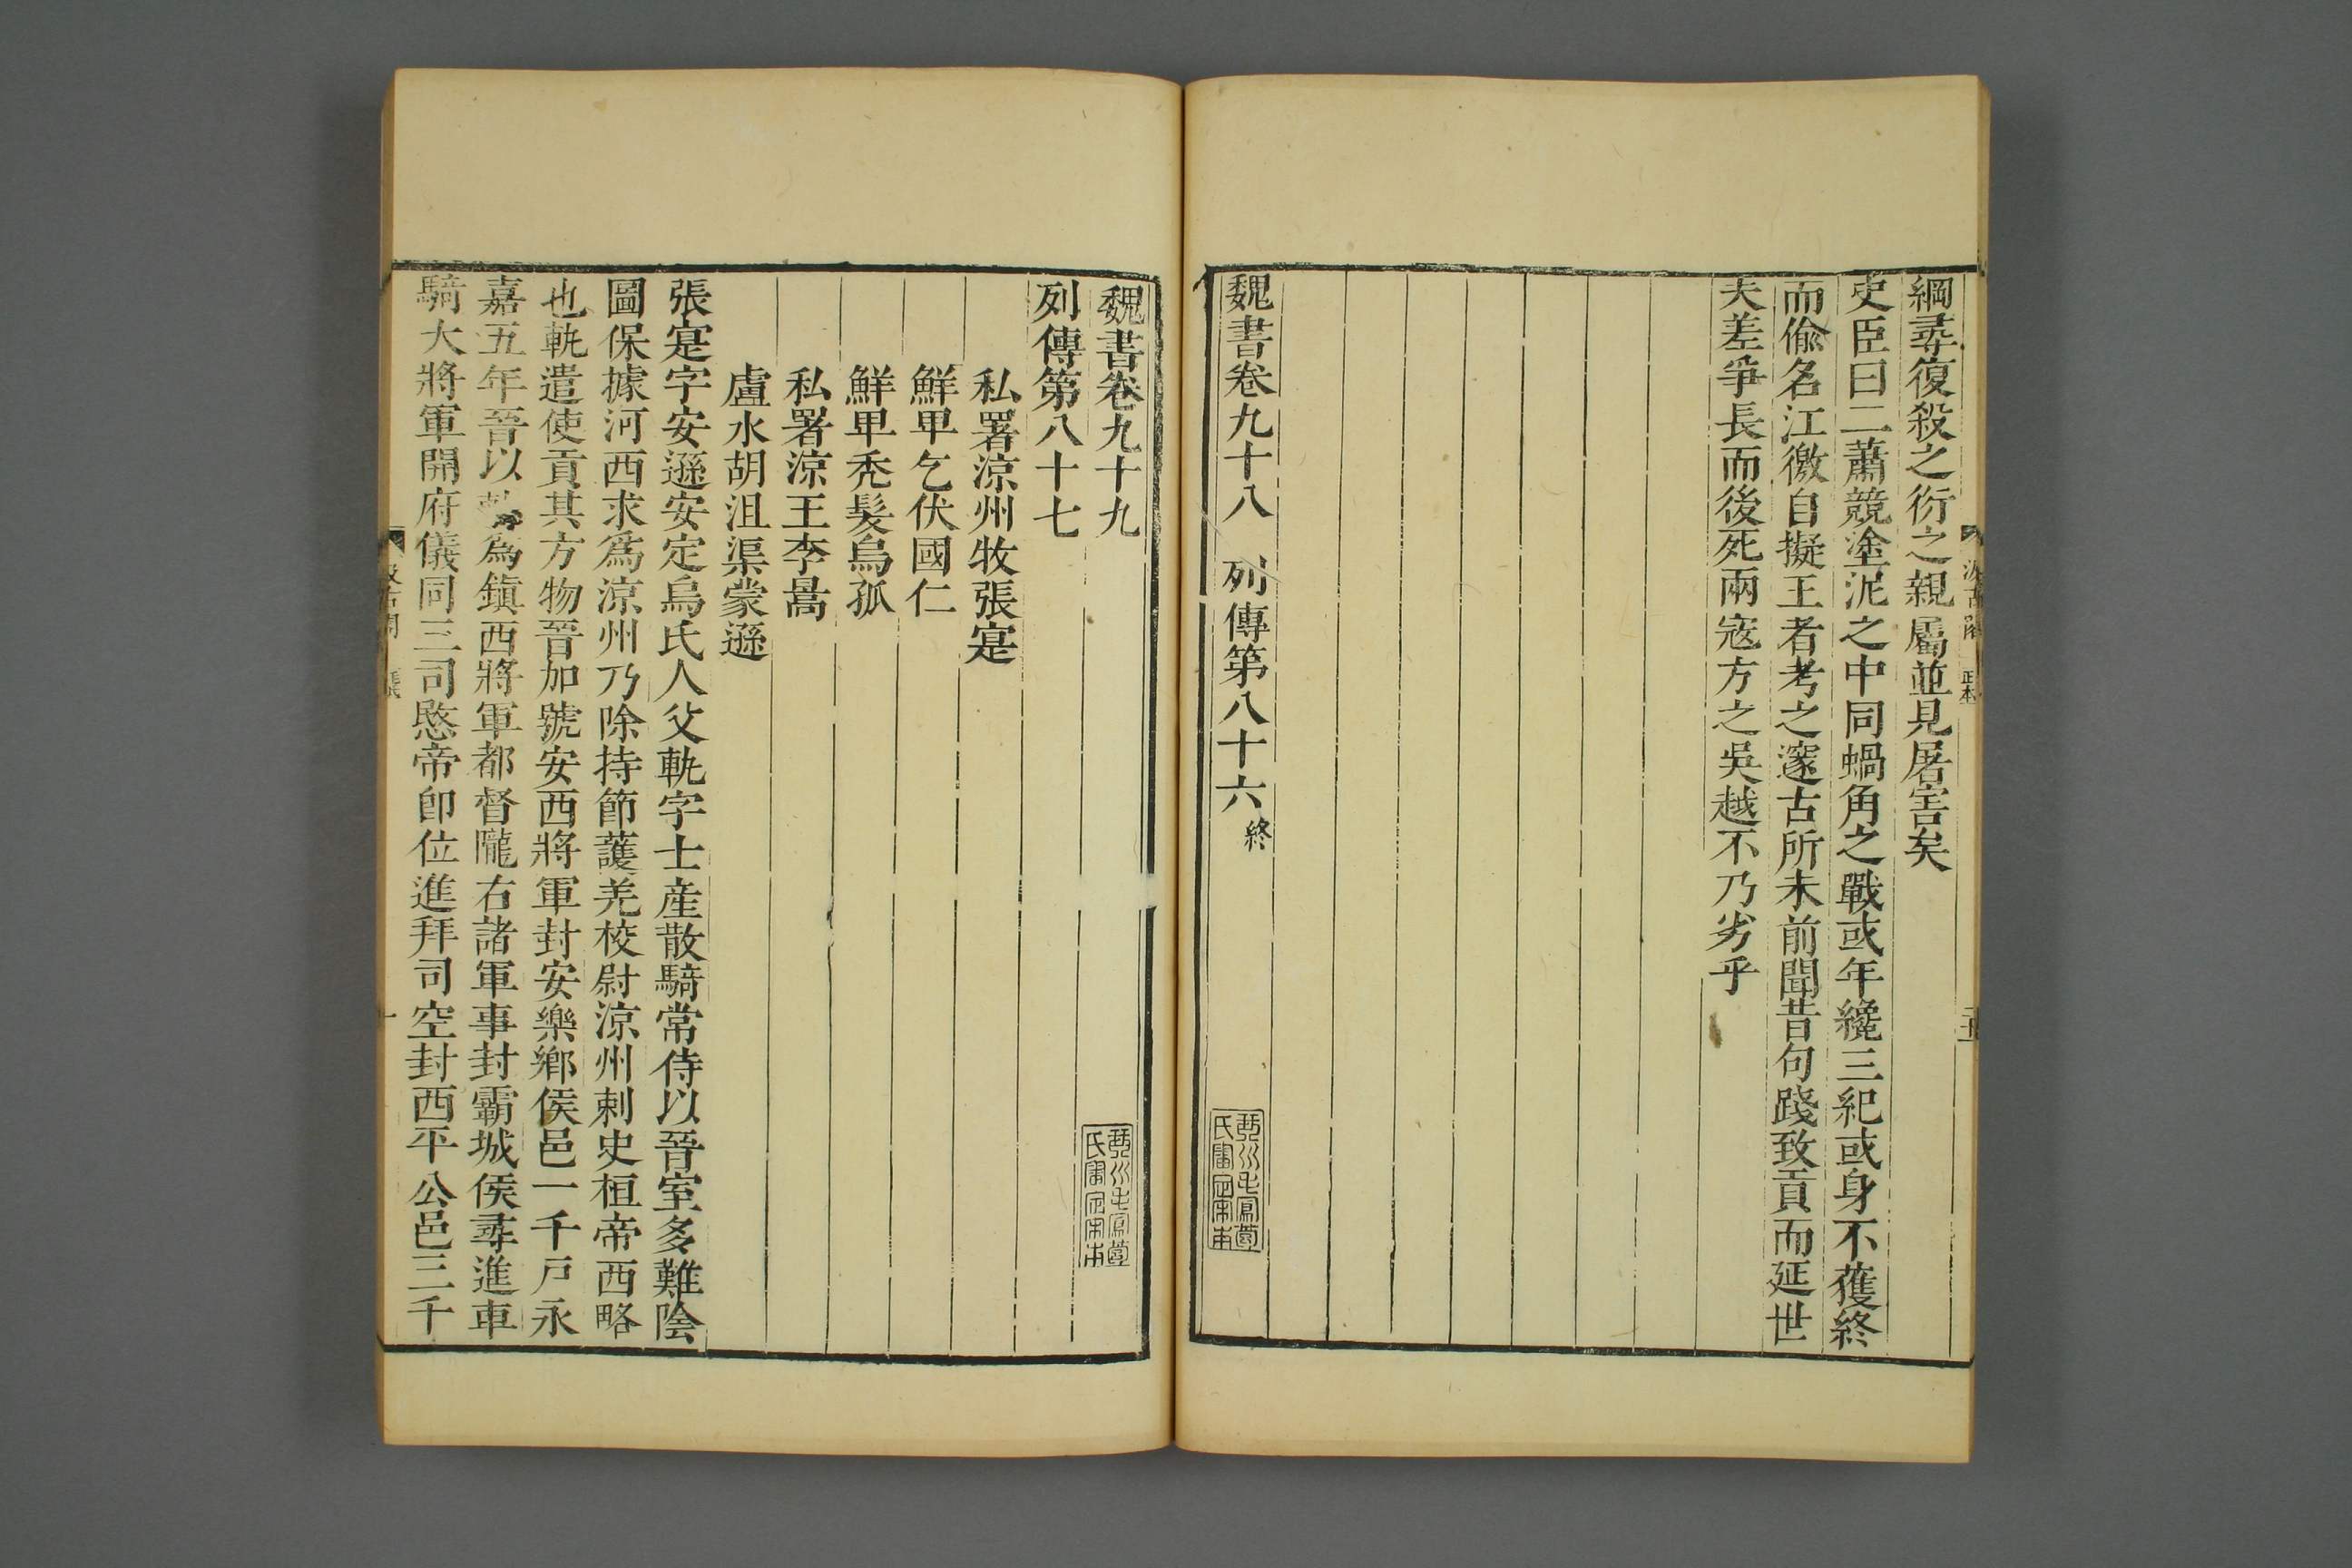 綱尋復殺之衍之親屬並見屠害矣
史臣曰二蕭競塗泥之中同蝸角之戰或年纔三紀或身不獲終
而偷名江徼自擬王者考之邃古所未前聞昔句踐致貢而延世
夫差爭長而後死兩寇方之吳越不乃劣乎
魏書卷九十八 列傳第八十六 終
魏書卷九十九
列傳第八十七
私署涼州牧張寔
鮮卑乞伏國仁
鮮卑禿髮烏孤
私署涼王李暠
盧水胡沮渠蒙遜
張寔字安遜安定烏氏人父軌字士彥散騎常侍以晉室多難陰
圖保據河西求爲涼州乃除持節護羌校尉涼州刺史桓帝西略
也軌遣使貢其方物晉加號安西將軍封安樂鄉侯邑一千戶永
嘉五年晉以爲鎮西將軍都督隴右諸軍事封霸城侯尋進車
騎大將軍開府儀同三司愍帝卽位進拜司空封西平公邑三千